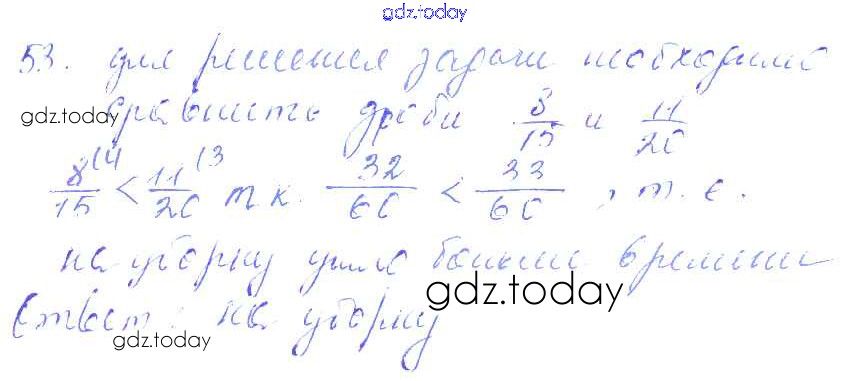 gdz.today
53. для решения задачи необходимо
gdz.today сравнить дроби 8/15 и 11/20
8/15 (4 < 11/20 (3 т.к. 32/60 < 33/60, т.е.
на уборку ушло больше времени
Ответ: на уборку
gdz.today
gdz.today